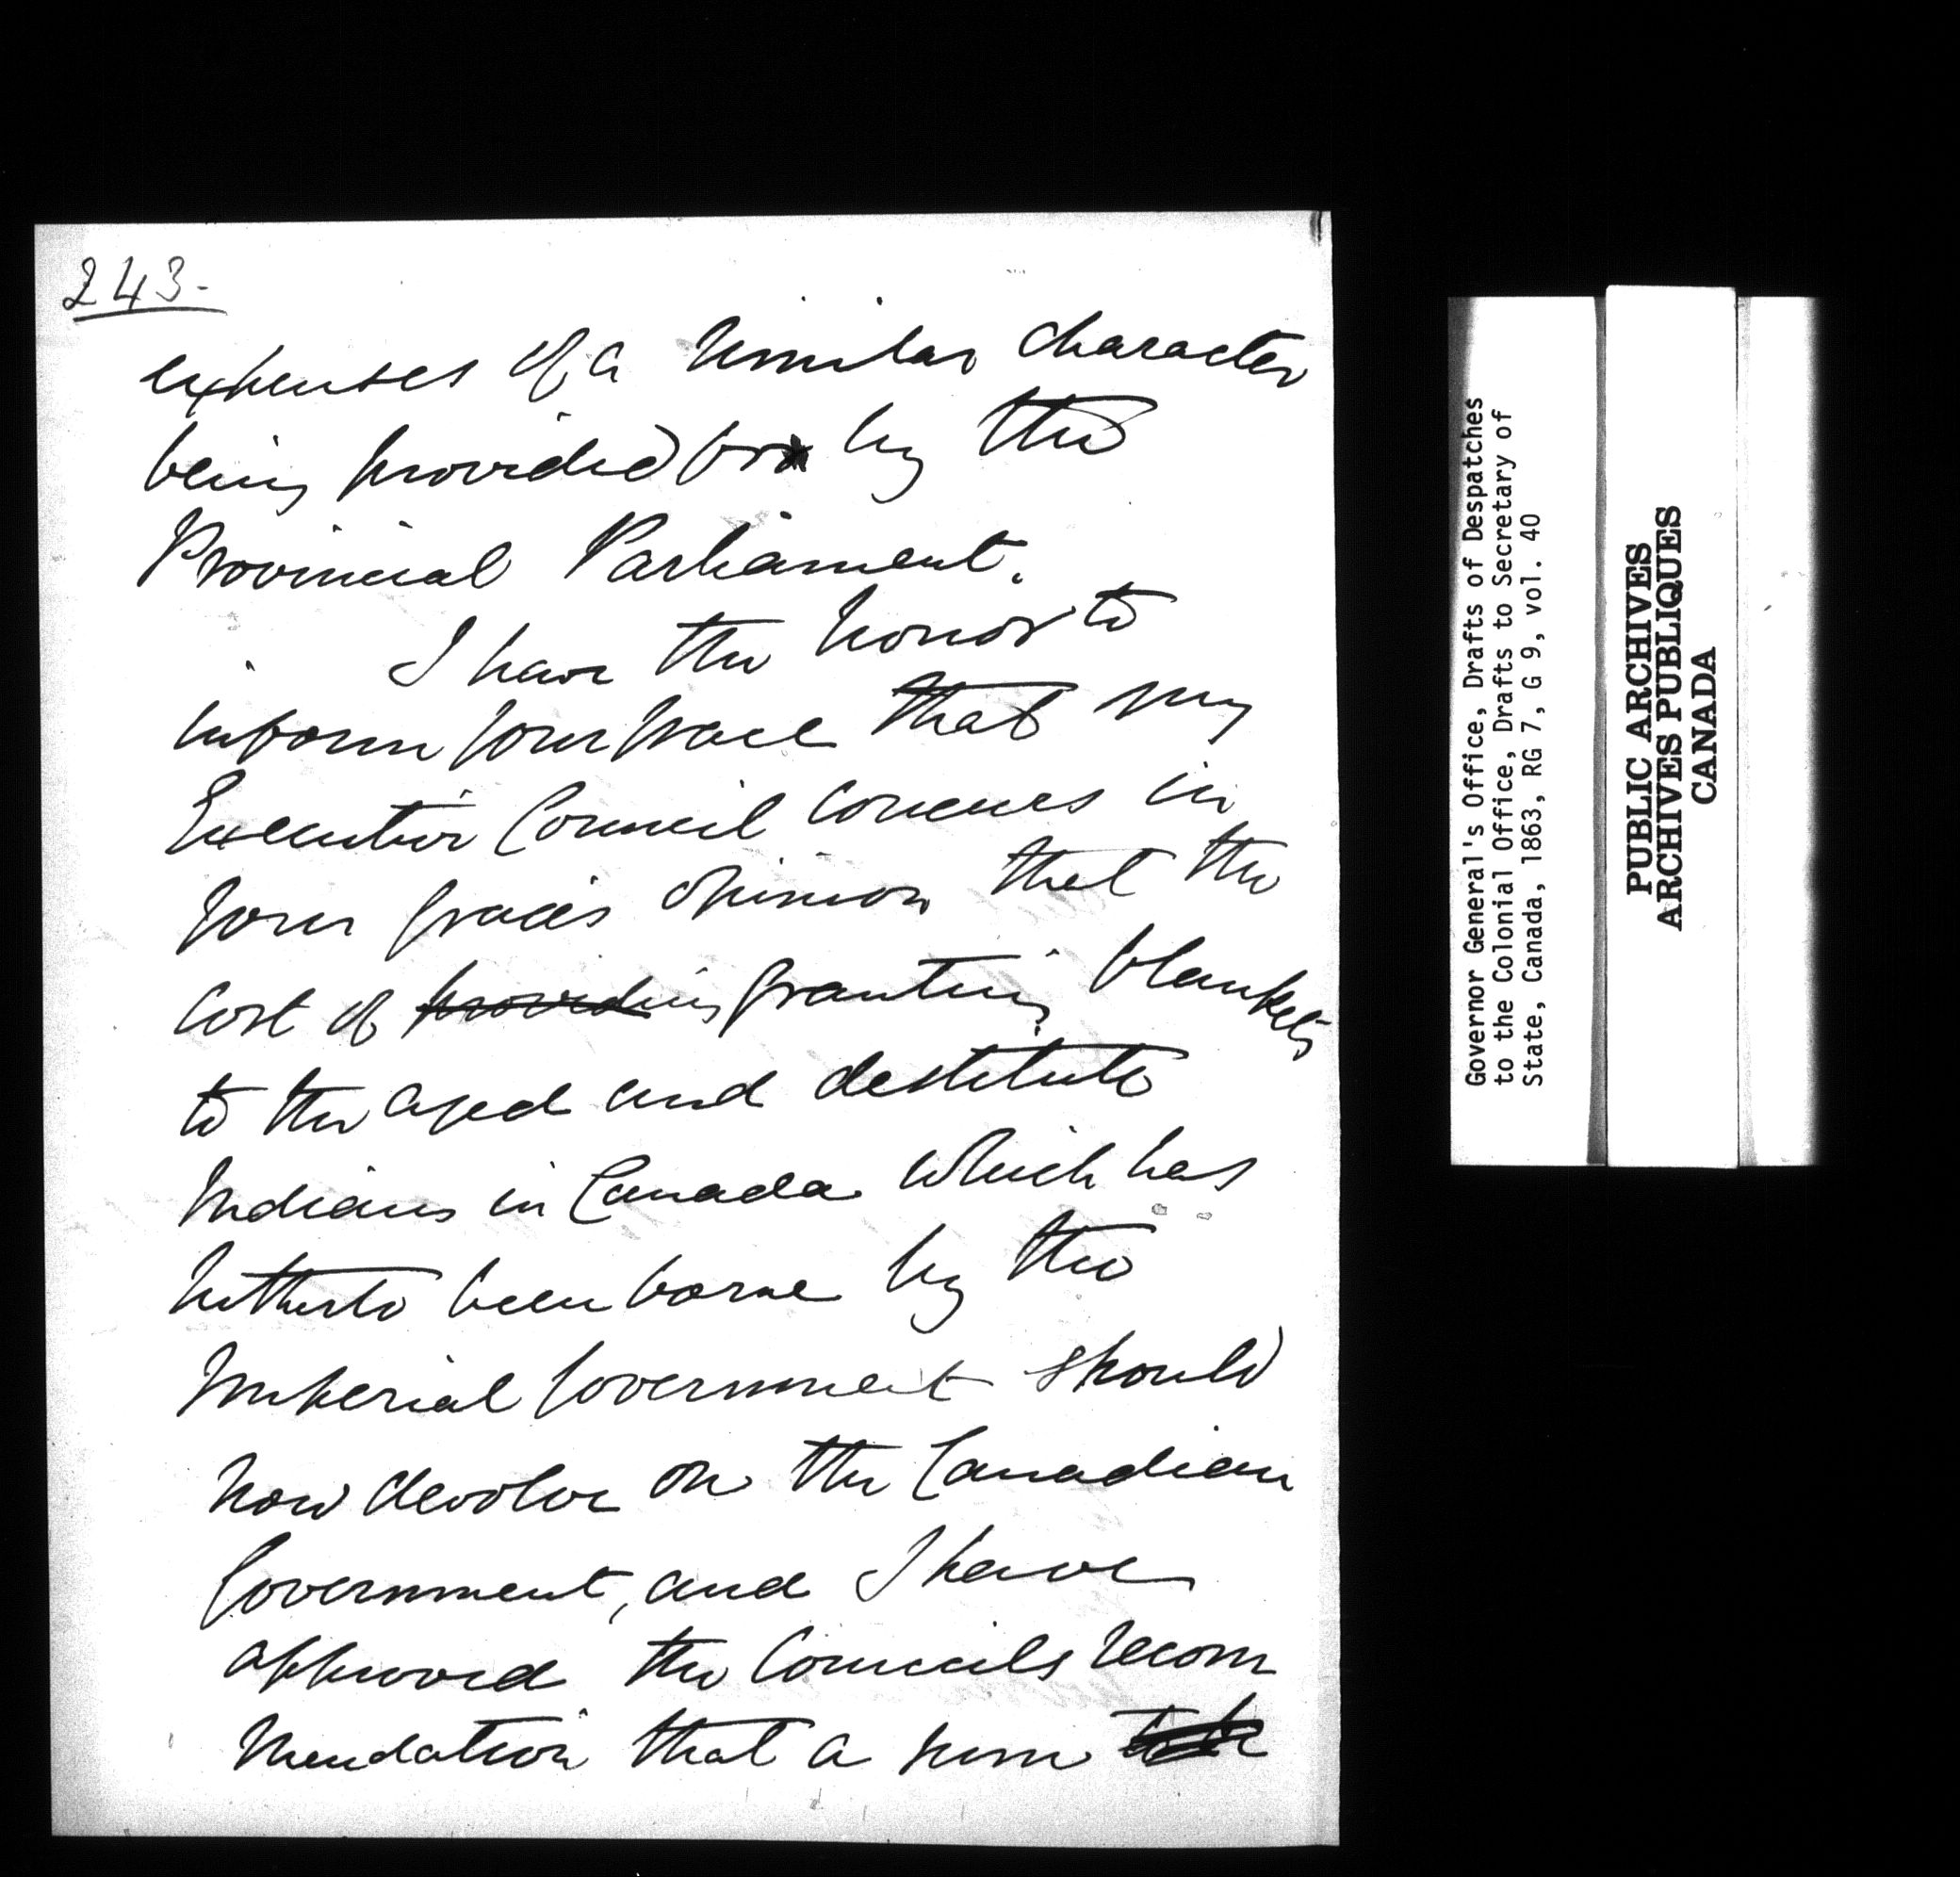 243.
expenses of a similar character
being provided for by the
Provincial Parliament.
I have the honor to
inform Your Grace that my
Executive Council concurs in
Your Grace's opinion that the
cost of providing granting blankets
to the aged and destitute
Indians in Canada which has
hitherto been borne by the
Imperial Government should
now devolve on the Canadian
Government, and I have
approved the Councils recom
mendation that a sum
Governor General's Office, Drafts of Despatches
to the Colonial Office, Drafts to Secretary of
State, Canada, 1863, RG 7, G 9, vol. 40
PUBLIC ARCHIVES
ARCHIVES PUBLIQUES
CANADA